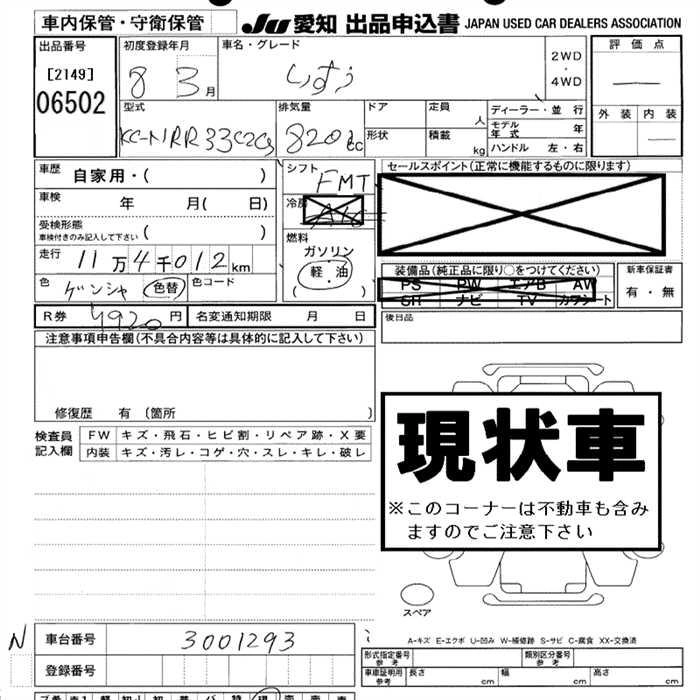 車内保管・守衛保管
JU 愛知 出品申込書 JAPAN USED CAR DEALERS ASSOCIATION
出品番号
[2149]
06502
初度登録年月
8 3 月
車名・グレード
いすゞ
2WD
・
4WD
評価点
外装 内装
型式
排気量
8201 cc
ドア
形状
定員 人
積載 kg
ディーラー・並行
モデル年式 年
ハンドル 左・右
車歴
自家用・( )
シフト
FMT
セールスポイント(正常に機能するものに限ります)
車検 年 月( 日)
冷房
受検形態
車検付きのみ記入して下さい ( )
燃料
ガソリン
軽・油
走行 11万4千012km
装備品(純正品に限り○をつけてください)
PS PW エアB AW
SR ナビ TV カワシート
新車保証書
有・無
色 ゲンシャ 色替 色コード
R券 4920 円 名変通知期限 月 日
後日品
注意事項申告欄(不具合内容等は具体的に記入して下さい)
修復歴 有 〔箇所 〕
現状車
※このコーナーは不動車も含み
ますのでご注意下さい
検査員
記入欄
FW キズ・飛石・ヒビ割・リペア跡・X要
内装 キズ・汚レ・コゲ・穴・スレ・キレ・破レ
スペア
A-キズ E-エクボ U-凹み W-補修跡 S-サビ C-腐食 XX-交換済
N 車台番号 3001293
登録番号
形式指定番号
参考
類別区分番号
参考
車庫証明用
参考
長さ cm 幅 cm 高さ cm